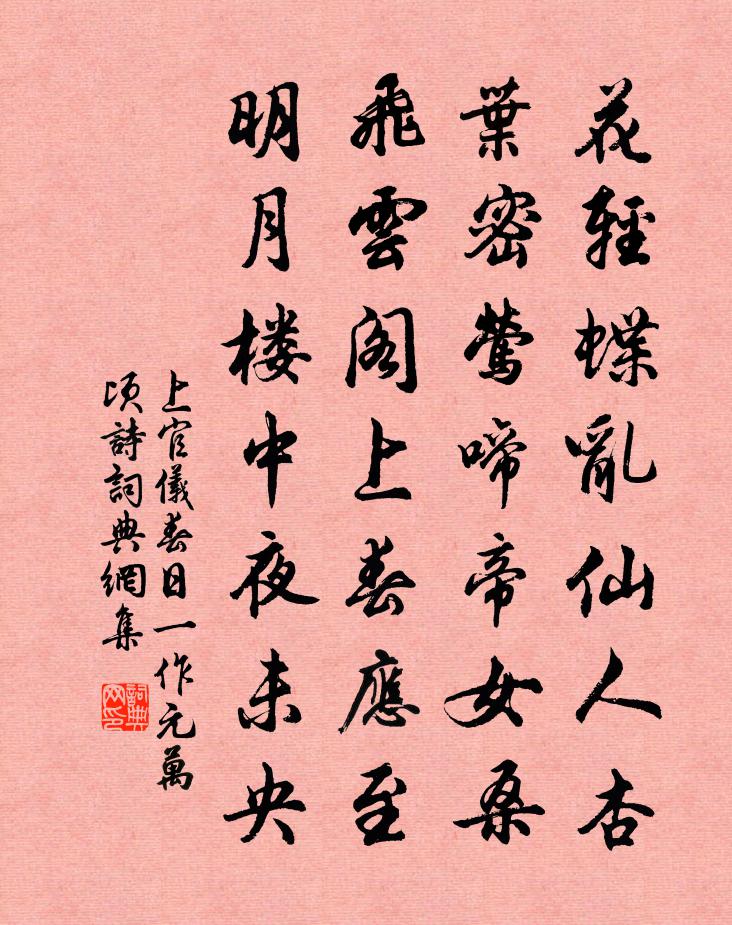 花輕蝶亂仙人杏
葉密鶯啼帝女桑
飛雲閣上春應至
明月楼中夜未央
上官儀春日一作元萬
頃詩詞典網集
詞典
网印